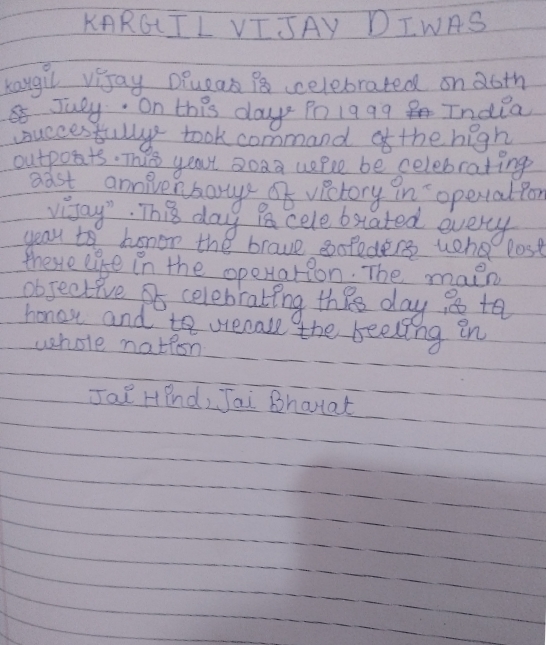 KARGIL VIJAY DIWAS
kargil vijay Diwas is celebrated on 26th
of July. On this day in 1999 in India
successfully took command of the high
outposts. This year 2022 we'll be celebrating
22st anniversary of victory in "operation
vijay". This day is celebrated every
year to honor the brave solders who lost
there life in the operation. The main
objective of celebrating this day is to
honor and to recall the feeling in
whole nation
Jai Hind, Jai Bharat